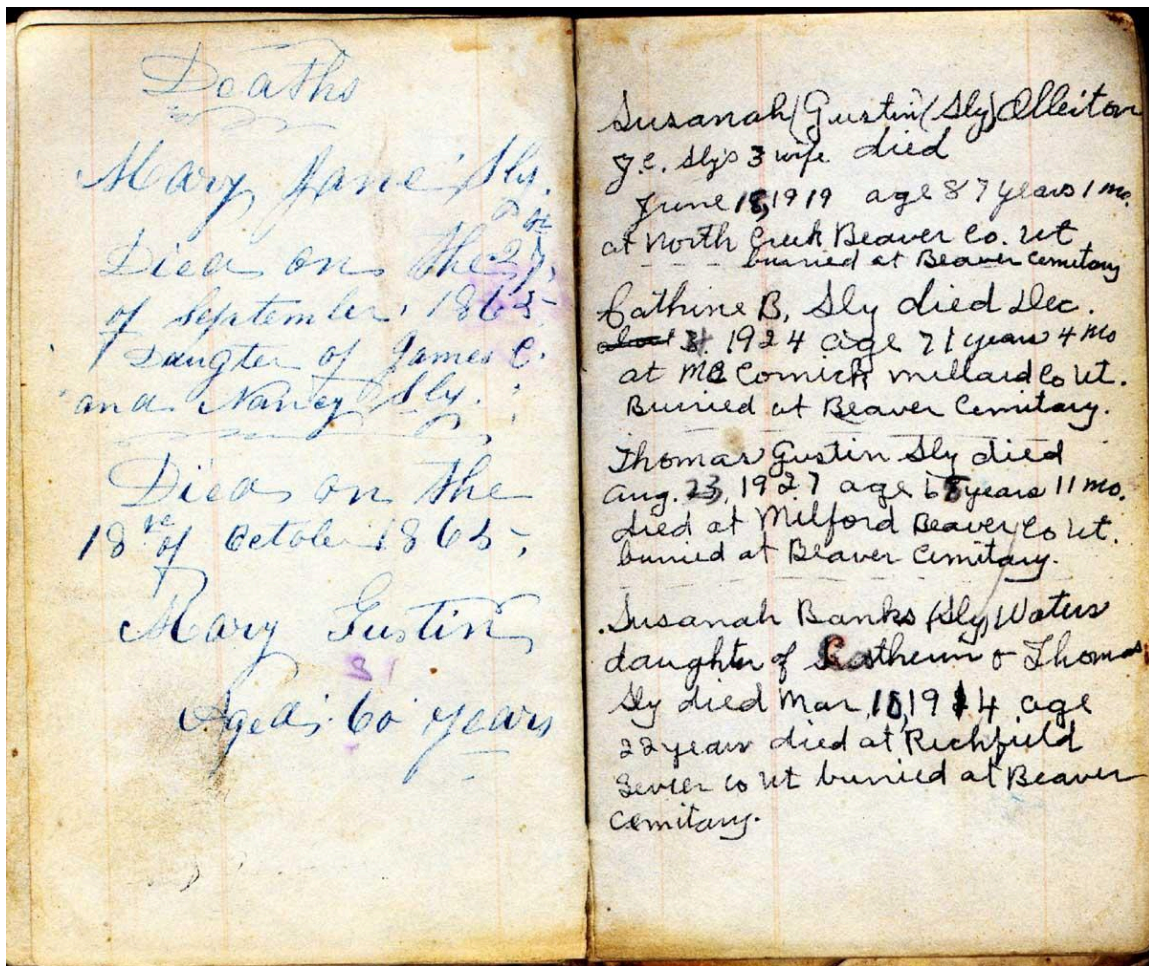 Deaths
Mary Jane Sly.
Died on the 27,
of September, 1865
Daugter of James C.
and Nancy Sly.
Died on the
18 of October 1865,
Mary Gustin
31
Aged 60 years
Susanah (Gustin) (Sly)
J.C. Sly's 3 wife died
June 18, 1919 age 87 years 1 mo.
at North Creek Beaver Co. Ut
burried at Beaver Cemitary
Cathrine B. Sly died Dec.
1924 age 71 years 4 mo
at Mc Cornick Millard Co Ut.
Burried at Beaver Cemitary.
Thomas Gustin Sly died
Aug. 23, 1927 age years 11 mo.
died at Milford Beaver Co Ut.
buried at Beaver Cemitary.
Susanah Banks (Sly) Waters
daughter of Catherin & Thomas
Sly died Mar, 18, 1914 age
22 years died at Richfield
Sevier Co Ut burried at Beaver
Cemitary.